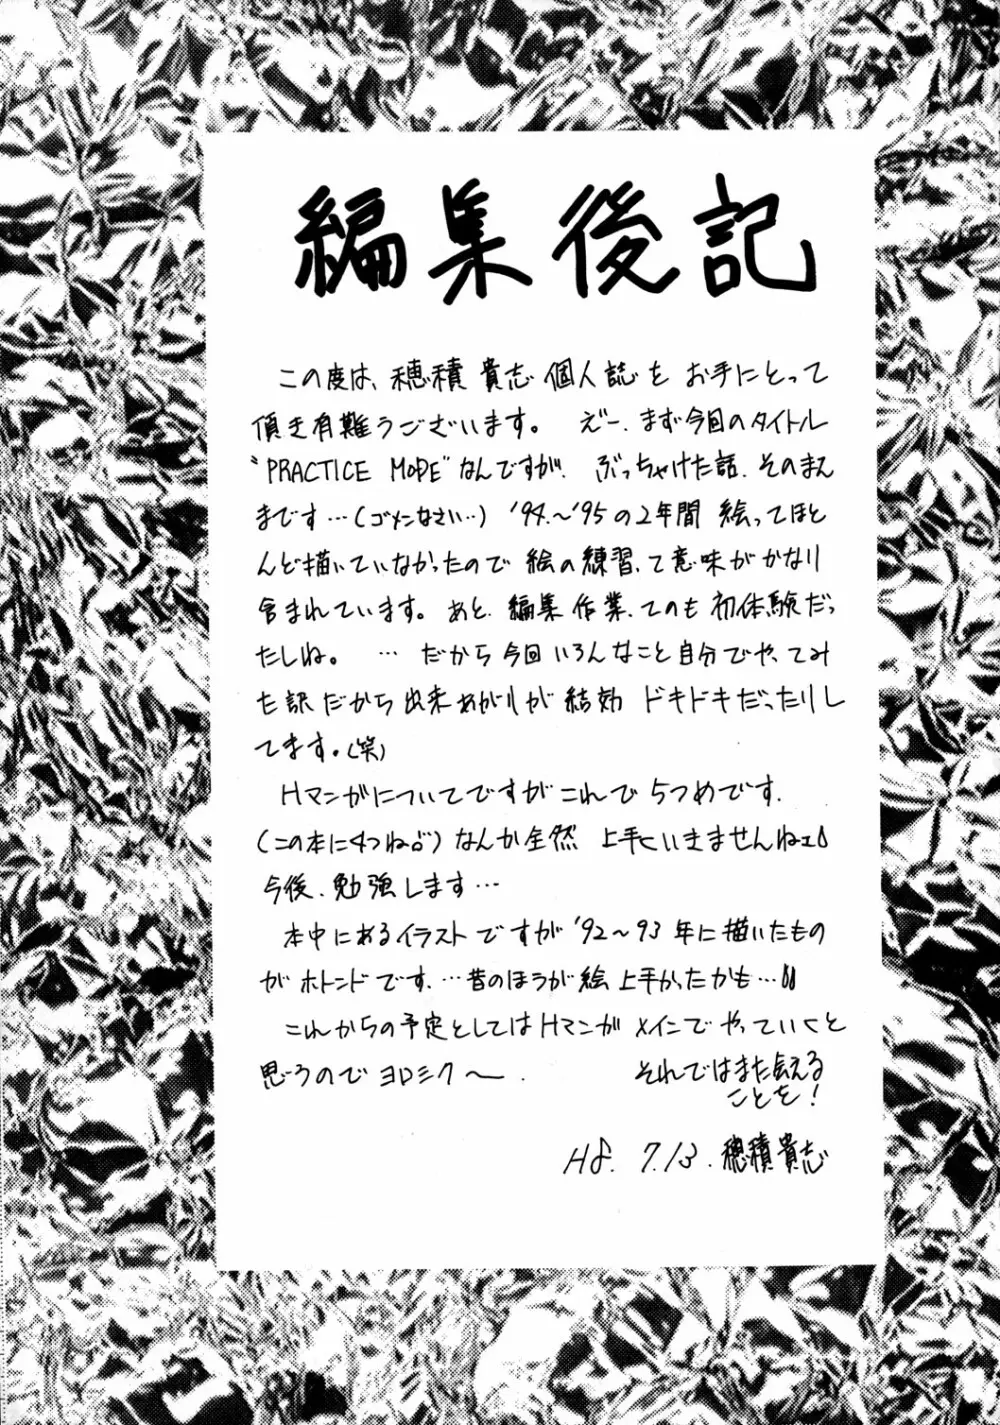 編集後記
この度は、穂積貴志個人誌をお手にとって
頂き有難うございます。 えー、まず今回のタイトル
"PRACTICE MODE"なんですが、ぶっちゃけた話、そのまん
まです…(ゴメンなさい…) '94.～'95の2年間 絵ってほと
んど描いていなかったので 絵の練習、て意味がかなり
含まれています。あと、編集作業、てのも初体験だっ
たしね。 … だから今回いろんなこと自分でや、てみ
た訳だから出来あがりが結効 ドキドキだったりし
てます。(笑)
Hマンガについてですがこれで5つめです.
(この本に4つね) なんか全然 上手くいきませんねェ
今後、勉強します…
本中にあるイラストですが'92～93年に描いたもの
がホトンドです. …昔のほうが絵上手かったかも…
これからの予定としてはHマンガメインでやっていくと
思うのでヨロシク～. それではまた会える
ことを!
H8. 7.13. 穂積貴志